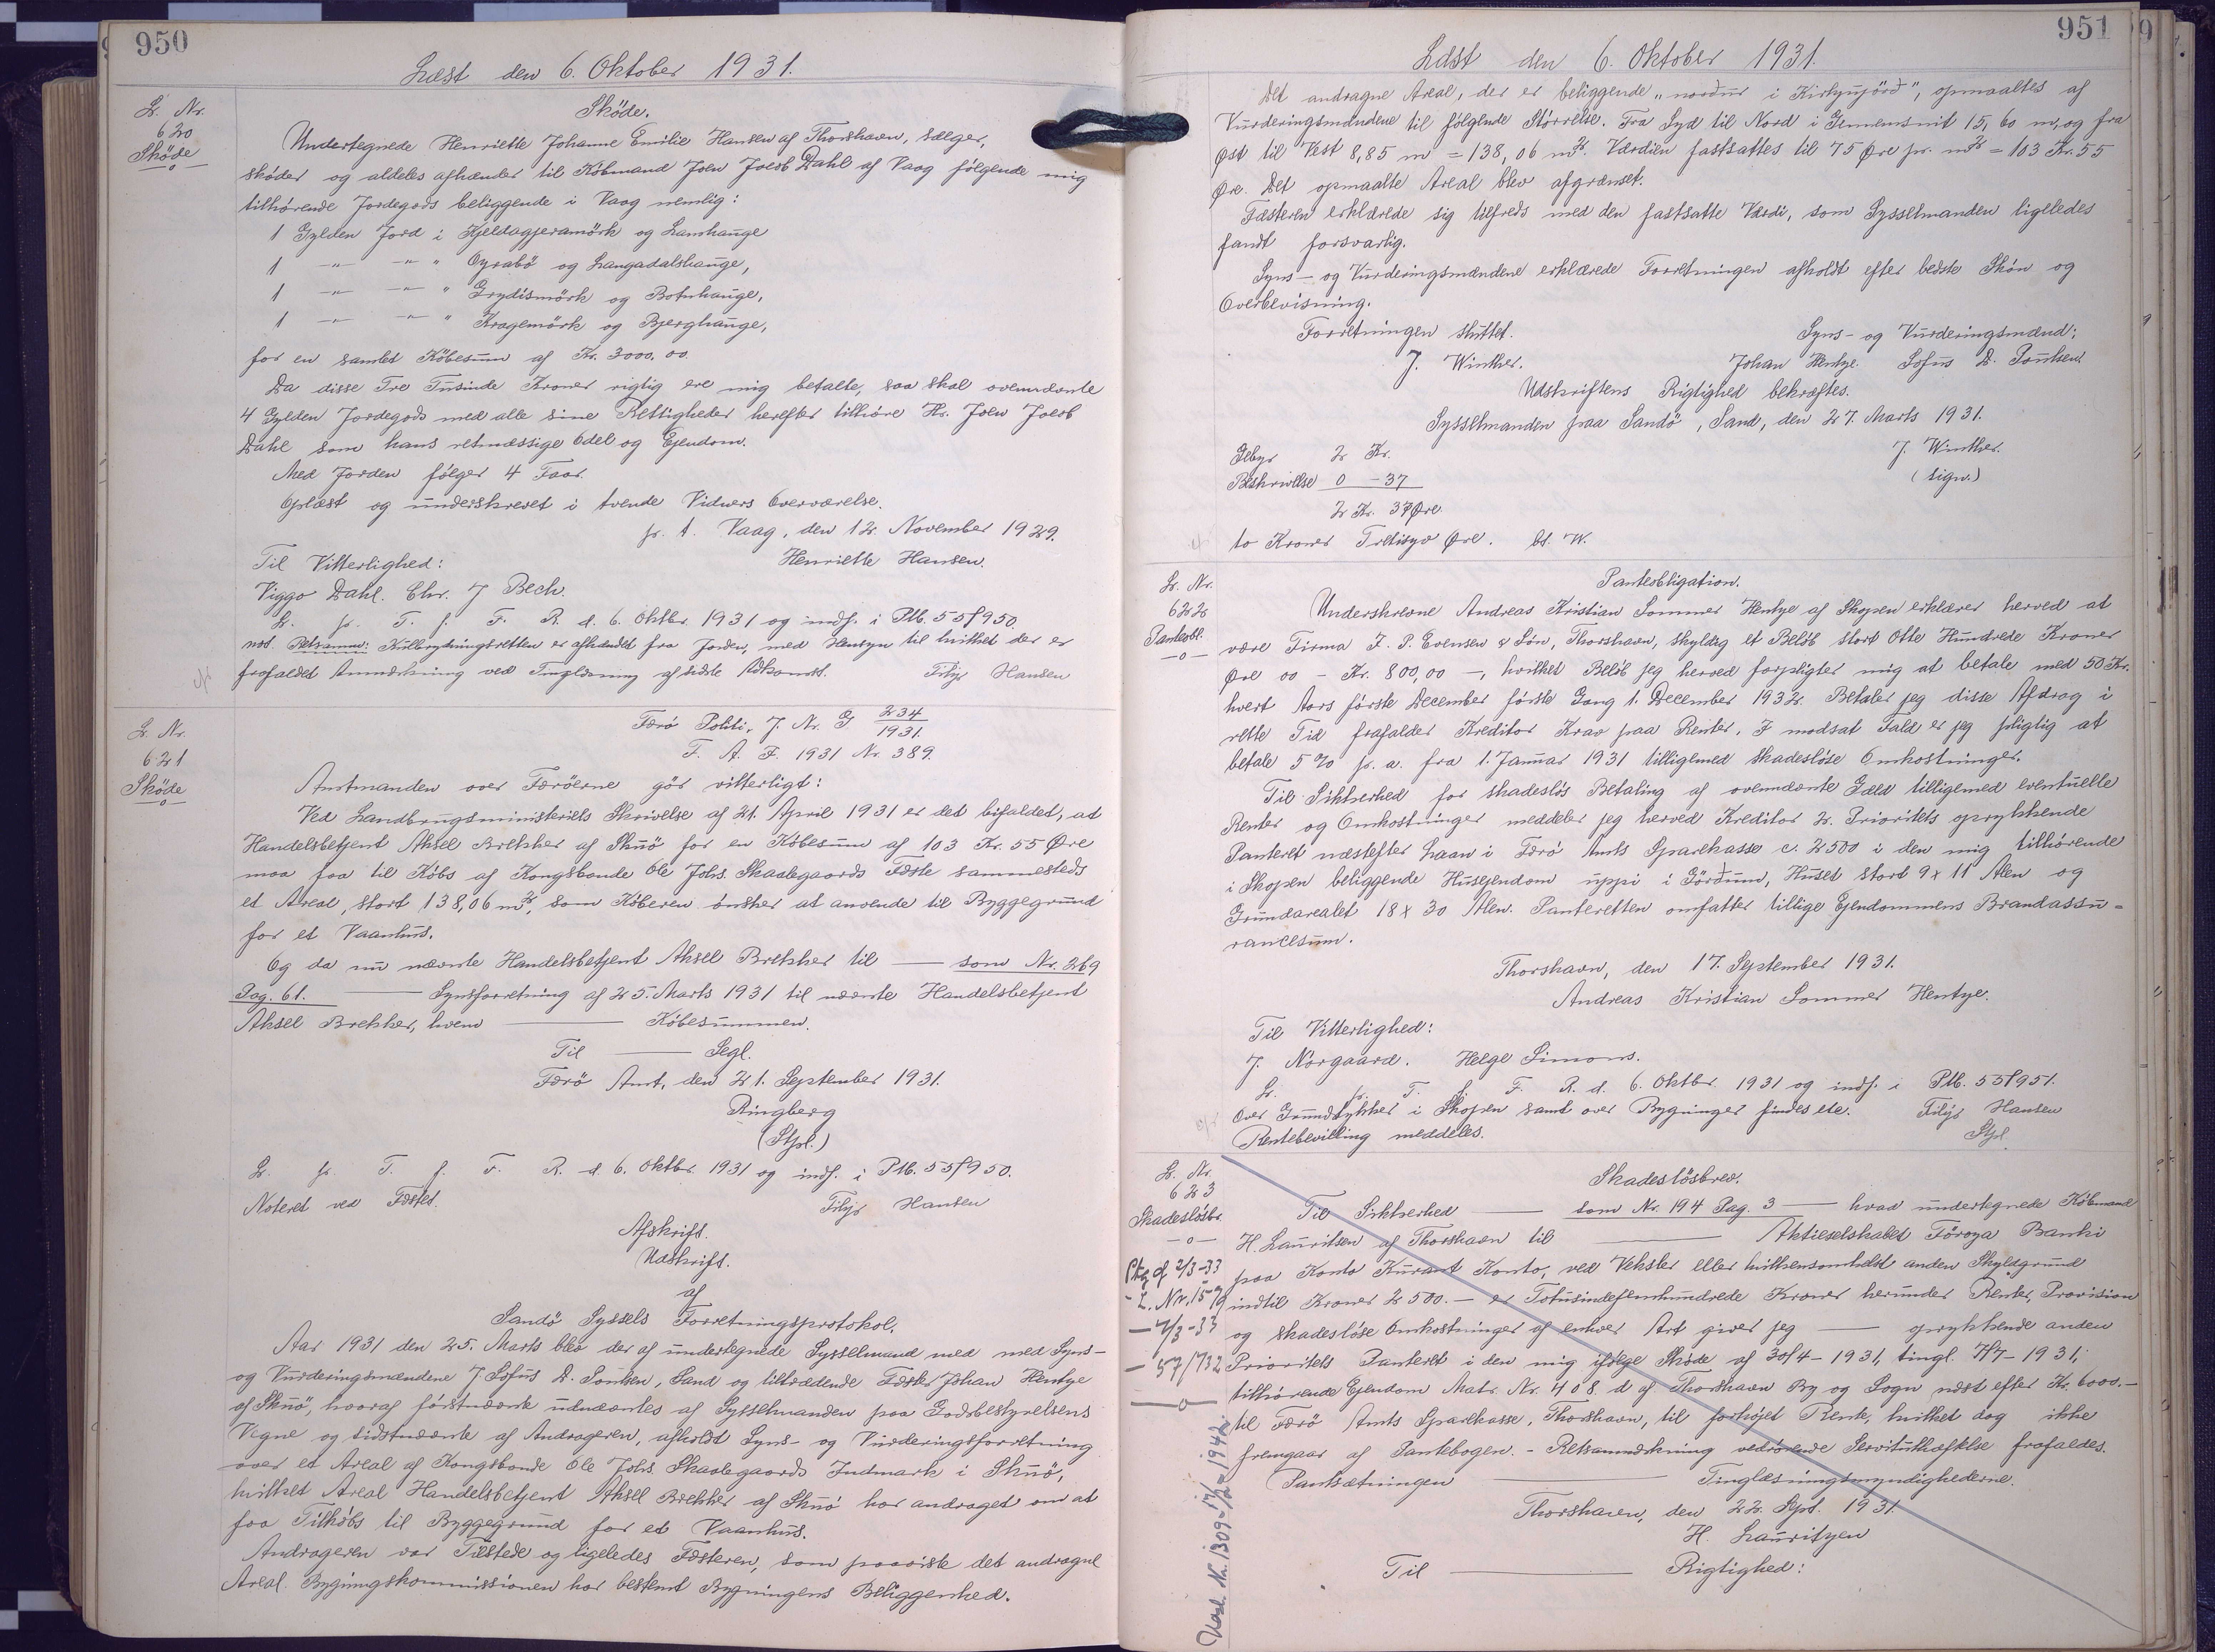 950
Læst den 6. Oktober 1931.
L. Nr.
620
Sköde
Sköde.
Undertegnede Henriette Johanne Emilie Hansen af Thorshavn, sælger,
skøder og aldeles afhænder til Købmand Joen Jacob Dahl af Vaag følgende mig
tilhørende Jordegods beliggende i Vaag nemlig:
1 Gylden Jord i Kjeldagjeramörk og Lamhauge
1 -"- -"- " Oyrabö og Langadalshauge,
1 -"- -"- " Grydismörk og Botnhauge,
1 -"- -"- " Kragemörk og Bjerghauge,
for en samlet Købesum af Kr. 3000,00.
Da disse Tre Tusinde Kroner rigtig ere mig betalte, saa skal ovennævnte
4 Gylden Jordegods med alle sine Rettigheder herefter tilhöre Hr. Joen Jacob
Dahl som hans retmæssige Odel og Ejendom.
Med Jorden følger 4 Faar.
Oplæst og underskrevet i tvende Vidners Overværelse.
p. t. Vaag, den 12. November 1929.
Til Vitterlighed: Henriette Hansen.
Viggo Dahl. Chr. J Bech.
L. p. T. f. F. R. d. 6. Oktbr. 1931 og indf. i Ptb. 55/950.
mod. Retsanm: Kulbrydningsretten er afhændet fra Jorden, med Hensyn til hvilket der er
frafaldet Anmærkning ved Tinglæsning af sidste Adkomst. Filip Hansen
L. Nr.
621
Sköde
Færö Politi, J. Nr. G 234/1931.
F. A. J. 1931 Nr. 389.
Amtmanden over Færöerne gör vitterligt:
Ved Landbrugsministeriets Skrivelse af 21. April 1931 er det bifaldet, at
Handelsbetjent Aksel Brekker af Skuö for en Købesum af 103 Kr. 55 Øre
maa faa til Købs af Kongsbonde Ole Johs. Skaalegaards Fæste sammesteds
et Areal, stort 138,06 m², som Køberen ønsker at anvende til Byggegrund
for et Vaanhus.
Og da nu nævnte Handelsbetjent Aksel Brekker til — som Nr. 269
Pag. 61. — Synsforretning af 25. Marts 1931 til nævnte Handelsbetjent
Aksel Brekker, hvem — Købesummen.
Til — Segl.
Færö Amt, den 21. September 1931.
Ringberg
(Stpl.)
L. p. T. f. F. R. d. 6. Oktbr. 1931 og indf. i Ptb. 55/950.
Noteret ved Fæstet. Filip Hansen
Afskrift.
Udskrift.
af
Sandö Syssels Forretningsprotokol.
Aar 1931 den 25. Marts blev der af undertegnede Sysselmand med med Syns-
og Vurderingsmændene J. Sofus D. Poulsen, Sand og tiltrædende Fæster Johan Hentze
af Skuö, hvoraf førstnævnte udnævntes af Sysselmanden paa Godsbestyrelsens
Vegne og sidstnævnte af Andrageren, afholdt Syns- og Vurderingsforretning
over et Areal af Kongsbonde Ole Johs. Skaalegaards Indmark i Skuö,
hvilket Areal Handelsbetjent Aksel Brekker af Skuö har andraget om at
faa Tilkøbs til Byggegrund for et Vaanhus.
Andrageren var Tilstede og ligeledes Fæsteren, som paaviste det andragne
Areal. Bygningskommissionen har bestemt Bygningens Beliggenhed.
951
Læst den 6. Oktober 1931.
Det andragne Areal, der er beliggende „norður i Kirkyujörð", opmaaltes af
Vurderingsmændene til følgende Størrelse. Fra Syd til Nord i Gennemsnit 15,60 m, og fra
Øst til Vest 8,85 m = 138,06 m². Værdien fastsattes til 75 Øre pr. m² = 103 Kr. 55
Øre. Det opmaalte Areal blev afgrænset.
Fæsteren erklærede sig tilfreds med den fastsatte Værdi, som Sysselmanden ligeledes
fandt forsvarlig.
Syns- og Vurderingsmændene erklærede Forretningen afholdt efter bedste Skön og
Overbevisning.
Forretningen sluttet. Syns- og Vurderingsmænd:
J. Winther. Johan Hentze. Sofus D. Poulsen.
Udskriftens Rigtighed bekræftes.
Sysselmanden paa Sandö, Sand, den 27. Marts 1931.
Gebyr 2 Kr. J. Winther.
Beskrivelse 0 - 37 (sign.)
2 Kr. 37 Øre.
to Kroner Tretisyv Øre. bt. W.
L. Nr.
622
Panteobl.
Panteobligation.
Underskrevne Andreas Kristian Sommer Hentze af Skopen erklærer herved at
være Firma J. P. Evensen & Søn, Thorshavn, skyldig et Beløb stort Otte Hundrede Kroner
Øre 00 - Kr. 800,00 -, hvilket Beløb jeg herved forpligter mig at betale med 50 Kr.
hvert Aars første December første Gang 1. December 1932. Betaler jeg disse Afdrag i
rette Tid frafalder Kreditor Krav paa Renter. I modsat Fald er jeg pligtig at
betale 5 % p. a. fra 1. Januar 1931 tilligemed skadesløse Omkostninger.
Til Sikkerhed for skadesløs Betaling af ovennævnte Gæld tilligemed eventuelle
Renter og Omkostninger meddeler jeg herved Kreditor 2. Prioritets oprykkende
Panteret næstefter Laan i Færö Amts Sparekasse c. 2500 i den mig tilhørende
i Skopen beliggende Husejendom uppi i Görðum, Huset stort 9 x 11 Alen og
Grundarealet 18 x 30 Alen. Panteretten omfatter tillige Ejendommens Brandassu-
rancesum.
Thorshavn, den 17. September 1931.
Andreas Kristian Sommer Hentze.
Til Vitterlighed:
J. Norgaard. Helge Simons.
L. p. T. f. F. R. d. 6. Oktbr. 1931 og indf. i Ptb. 55/951.
Over Grundstykker i Skopen samt over Bygninger findes ete. Filip Hansen
Rentebevilling meddeles. Stpl
L. Nr.
623
Skadeslösbr.
Skadeslösbrev.
Til Sikkerhed — som Nr. 194 Pag. 3 — hvad undertegnede Købmand
H. Lauritsen af Thorshavn til — Aktieselskabet Föroya Banki
paa Konto Kurant Konto, ved Veksler eller hvilkensomhelst anden Skyldgrund
indtil Kroner 2500.- er Totusindefemhundrede Kroner herunder Renter, Provision
og skadesløse Omkostninger af enhver Art giver jeg — oprykkende anden
Prioritets Panteret i den mig ifølge Skøde af 30/4-1931, tingl. 7/7-1931,
tilhørende Ejendom Matr. Nr. 408 d af Thorshavn By og Sogn næst efter Kr. 6000.-
til Færö Amts Sparekasse, Thorshavn, til forhøjet Rente, hvilket dog ikke
fremgaar af Pantebogen. - Retsanmærkning vedrørende Servituthæftelse frafaldes.
Pantsætningen — Tinglæsningsmyndighederne.
Thorshavn, den 22. Sept. 1931.
H. Lauritzen
Til — Rigtighed: